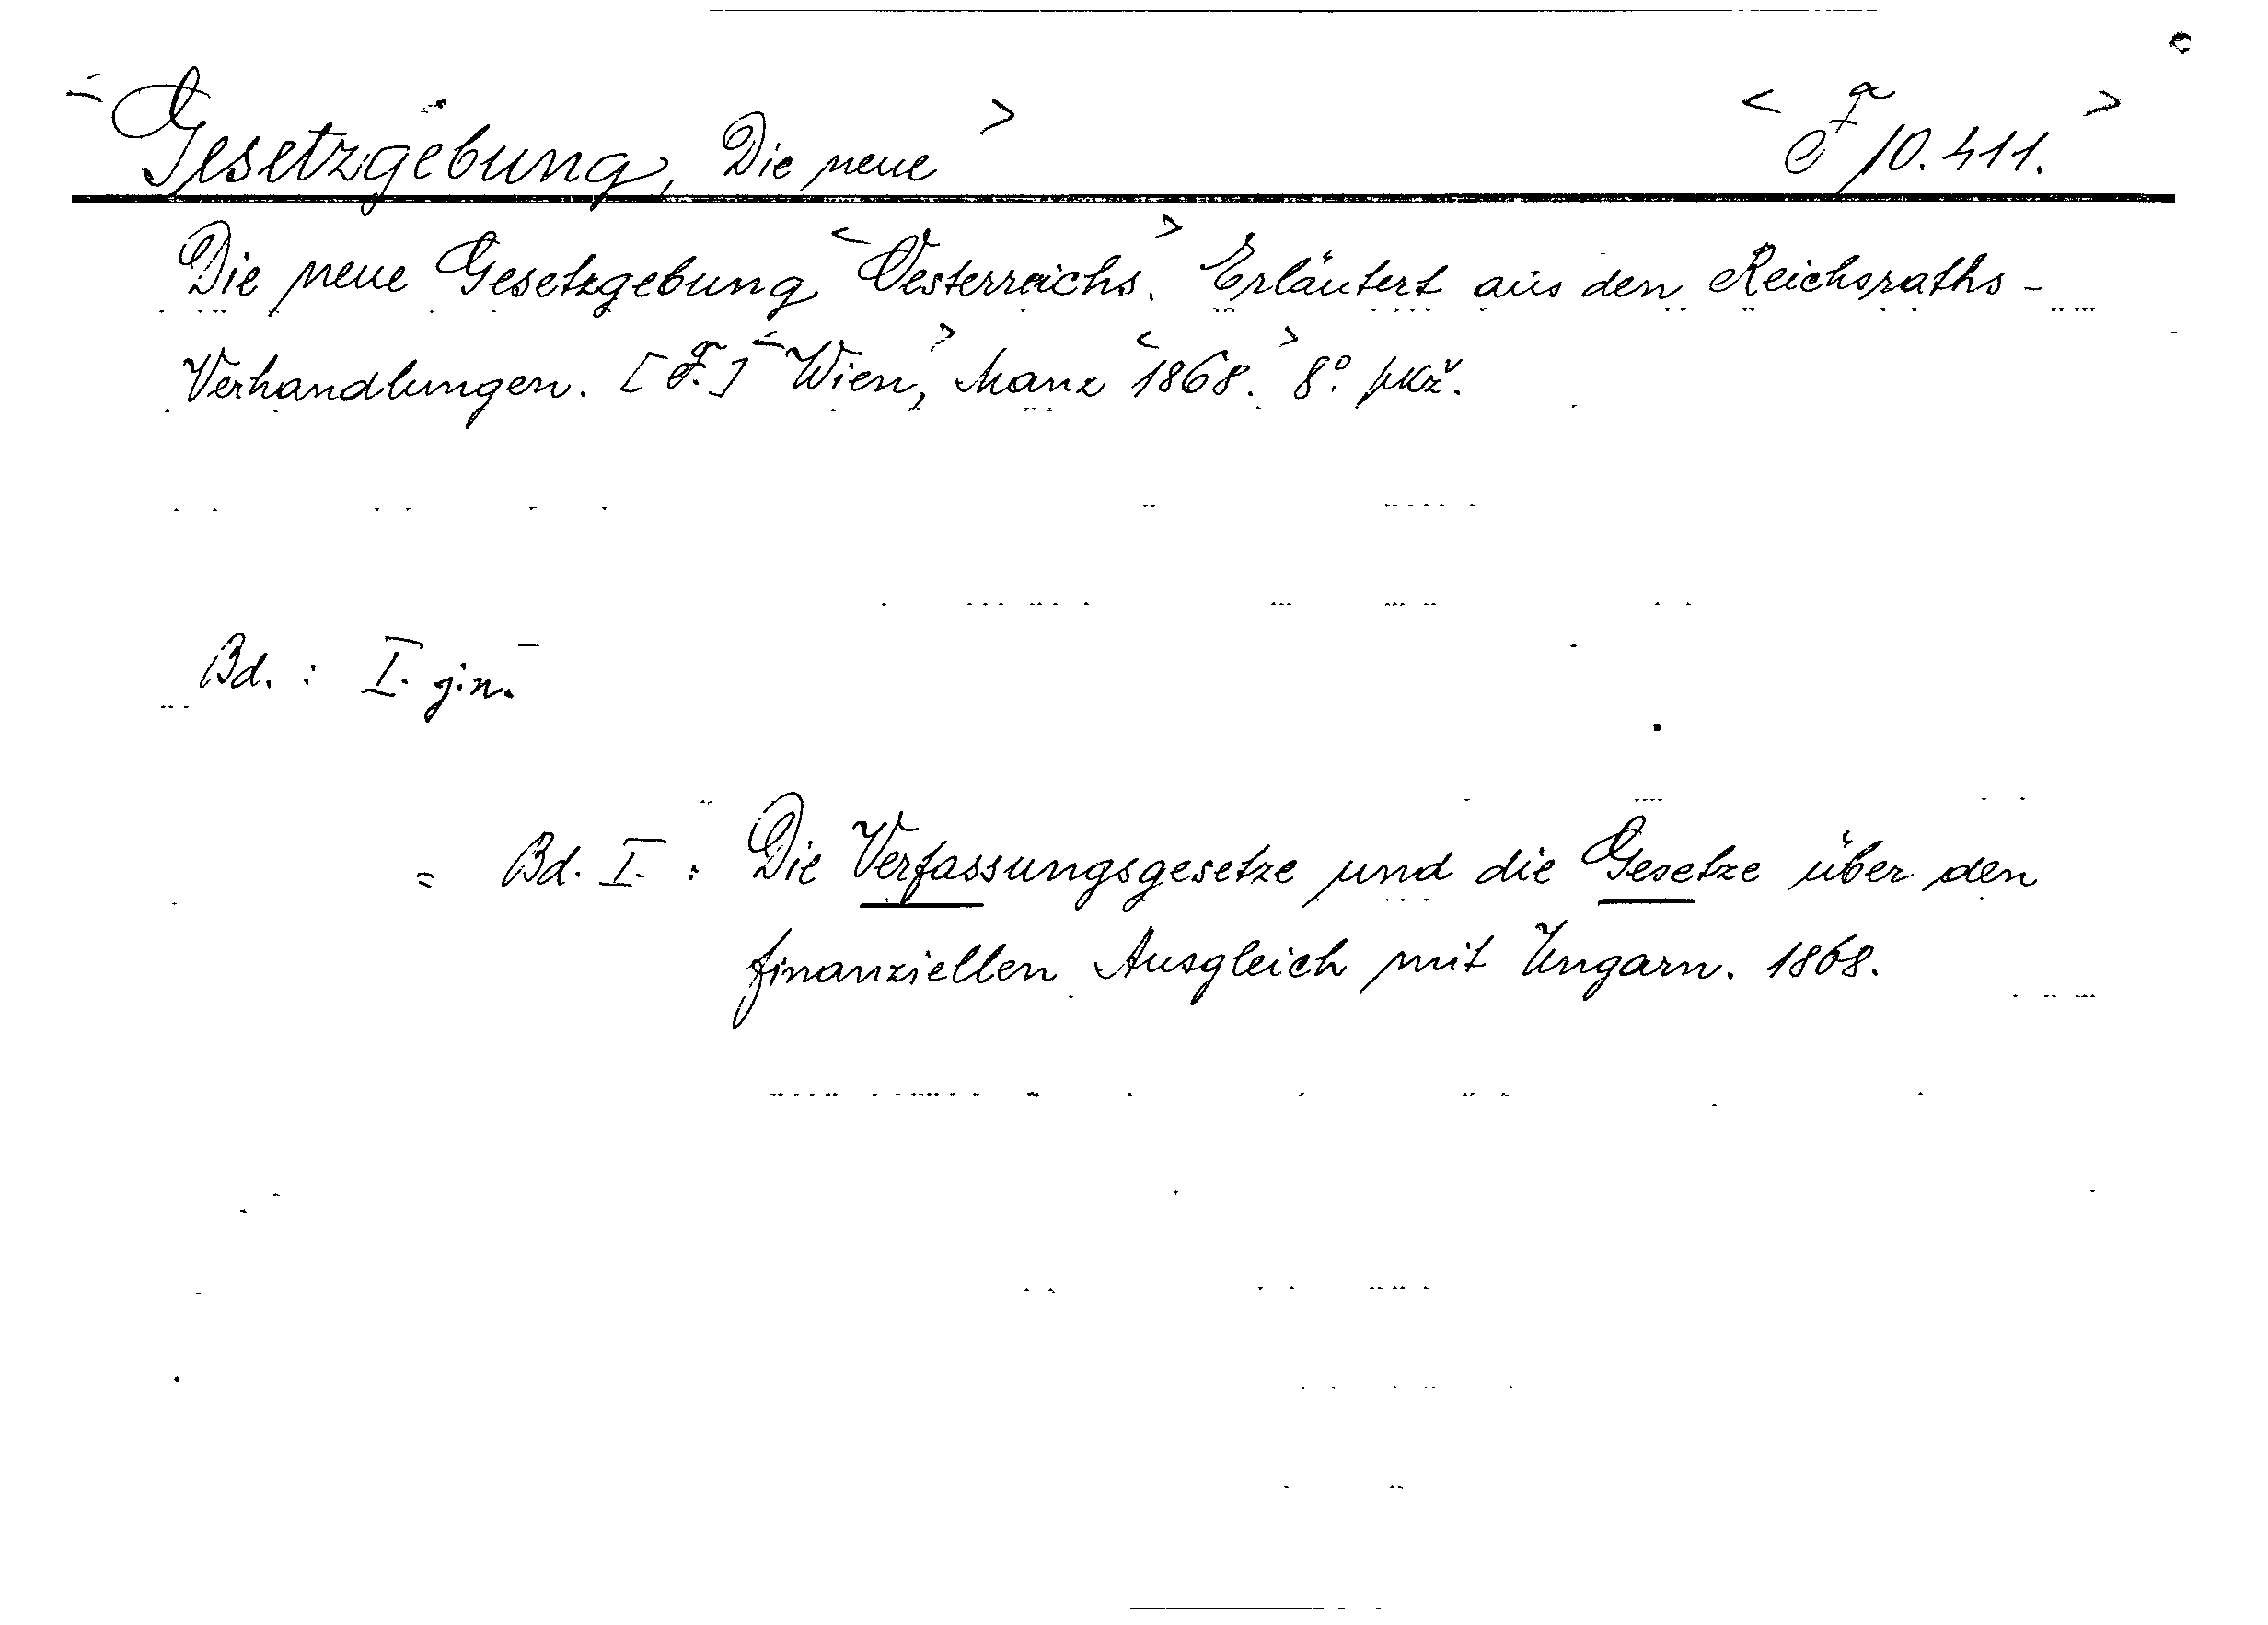 <Gesetzgebung, Die neue> <F 10.411.>
Die neue Gesetzgebung <Oesterreichs.> Erläutert aus den Reichsraths-
Verhandlungen. [F.] <Wien,> Manz <1868.> 8°. pkž.
Bd.: I. j.n.
= Bd. I.: Die Verfassungsgesetze und die Gesetze über den
finanziellen Ausgleich mit Ungarn. 1868.